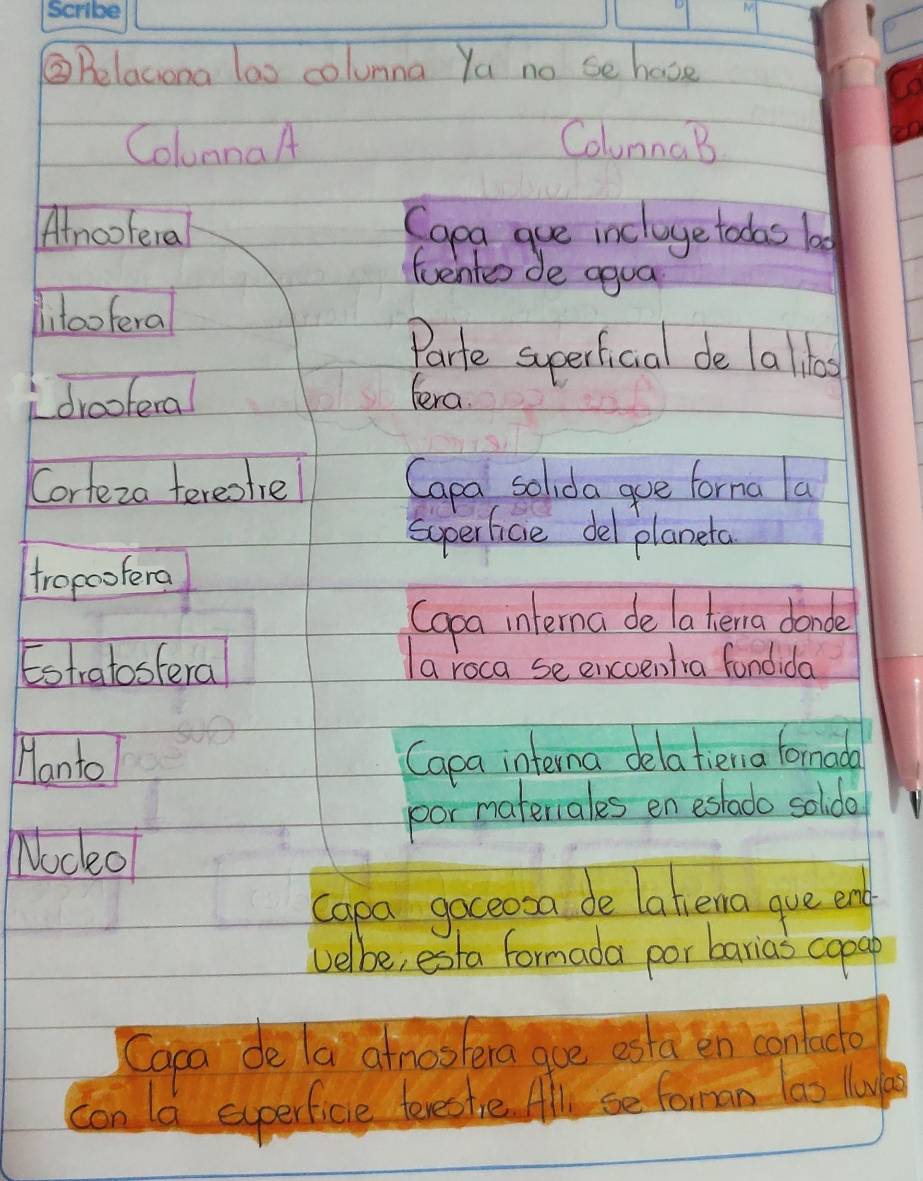 Scribe
D
M
② Relaciona las columna Ya no se hace
Columna A
Columna B
Atmosfera
litosfera
Idrosfera
Corteza terestre
troposfera
Estratosfera
Manto
Nucleo
Capa que incluye todas las
fuentes de agua.
Parte superficial de la litos
fera.
Capa solida que forma la
superficie del planeta.
Capa interna de la tierra donde
la roca se encuentra fundida
Capa interna dela tierra formada
por materiales en estado solido
Capa gaceosa de la tierra que en
velbe, esta formada por barias capas
Capa de la atmosfera que esta en contacto
con la superficie terestre. Alli se forman las lluvias